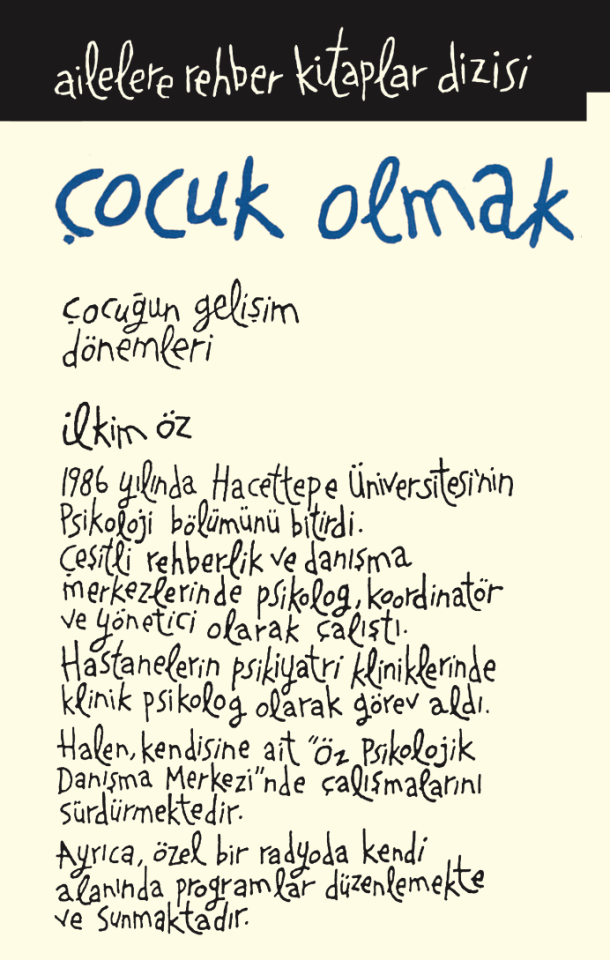 ailelere rehber kitaplar dizisi
çocuk olmak
çocuğun gelişim
dönemleri
ilkim öz
1986 yılında Hacettepe Üniversitesi'nin
Psikoloji bölümünü bitirdi.
Çeşitli rehberlik ve danışma
merkezlerinde psikolog, koordinatör
ve yönetici olarak çalıştı.
Hastanelerin psikiyatri kliniklerinde
klinik psikolog olarak görev aldı.
Halen, kendisine ait "Öz Psikolojik
Danışma Merkezi"nde çalışmalarını
sürdürmektedir.
Ayrıca, özel bir radyoda kendi
alanında programlar düzenlemekte
ve sunmaktadır.